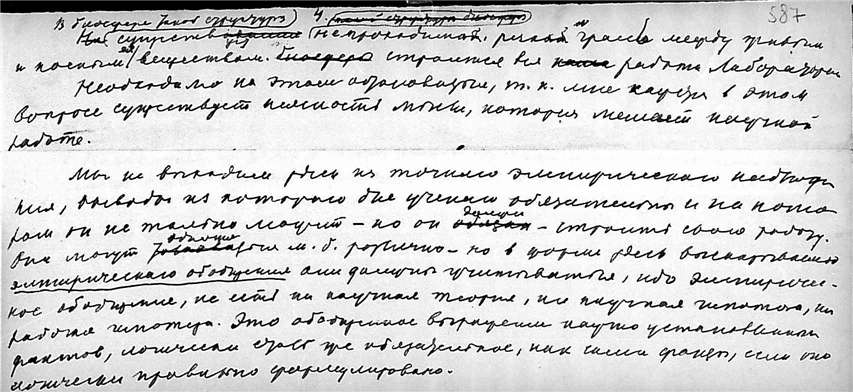 В биосфере (какова структура) 4. 587
На существ непроходимой, резкой грани между живым
и косным её веществом строится вся работа Лаборатории
Необходимо на этом остановиться, т. к. мне кажется в этом
вопросе существует неясность мысли, которая мешает научной
работе.
Мы не выходим здесь из точного эмпирического наблюде
ния, выводы из которого для ученого обязательны и на кото
ром он не только может – но он должен – строить свою работу.
Они могут м. б. различно – но в форме здесь высказываемого
эмпирического обобщения они должны учитываться, ибо эмпириче-
ское обобщение, не есть ни научная теория, ни научная гипотеза, ни
рабочая гипотеза. Это обобщенное выражение научно установленных
фактов, логически столь же обязательное, как сами факты, если оно
логически правильно сформулировано.